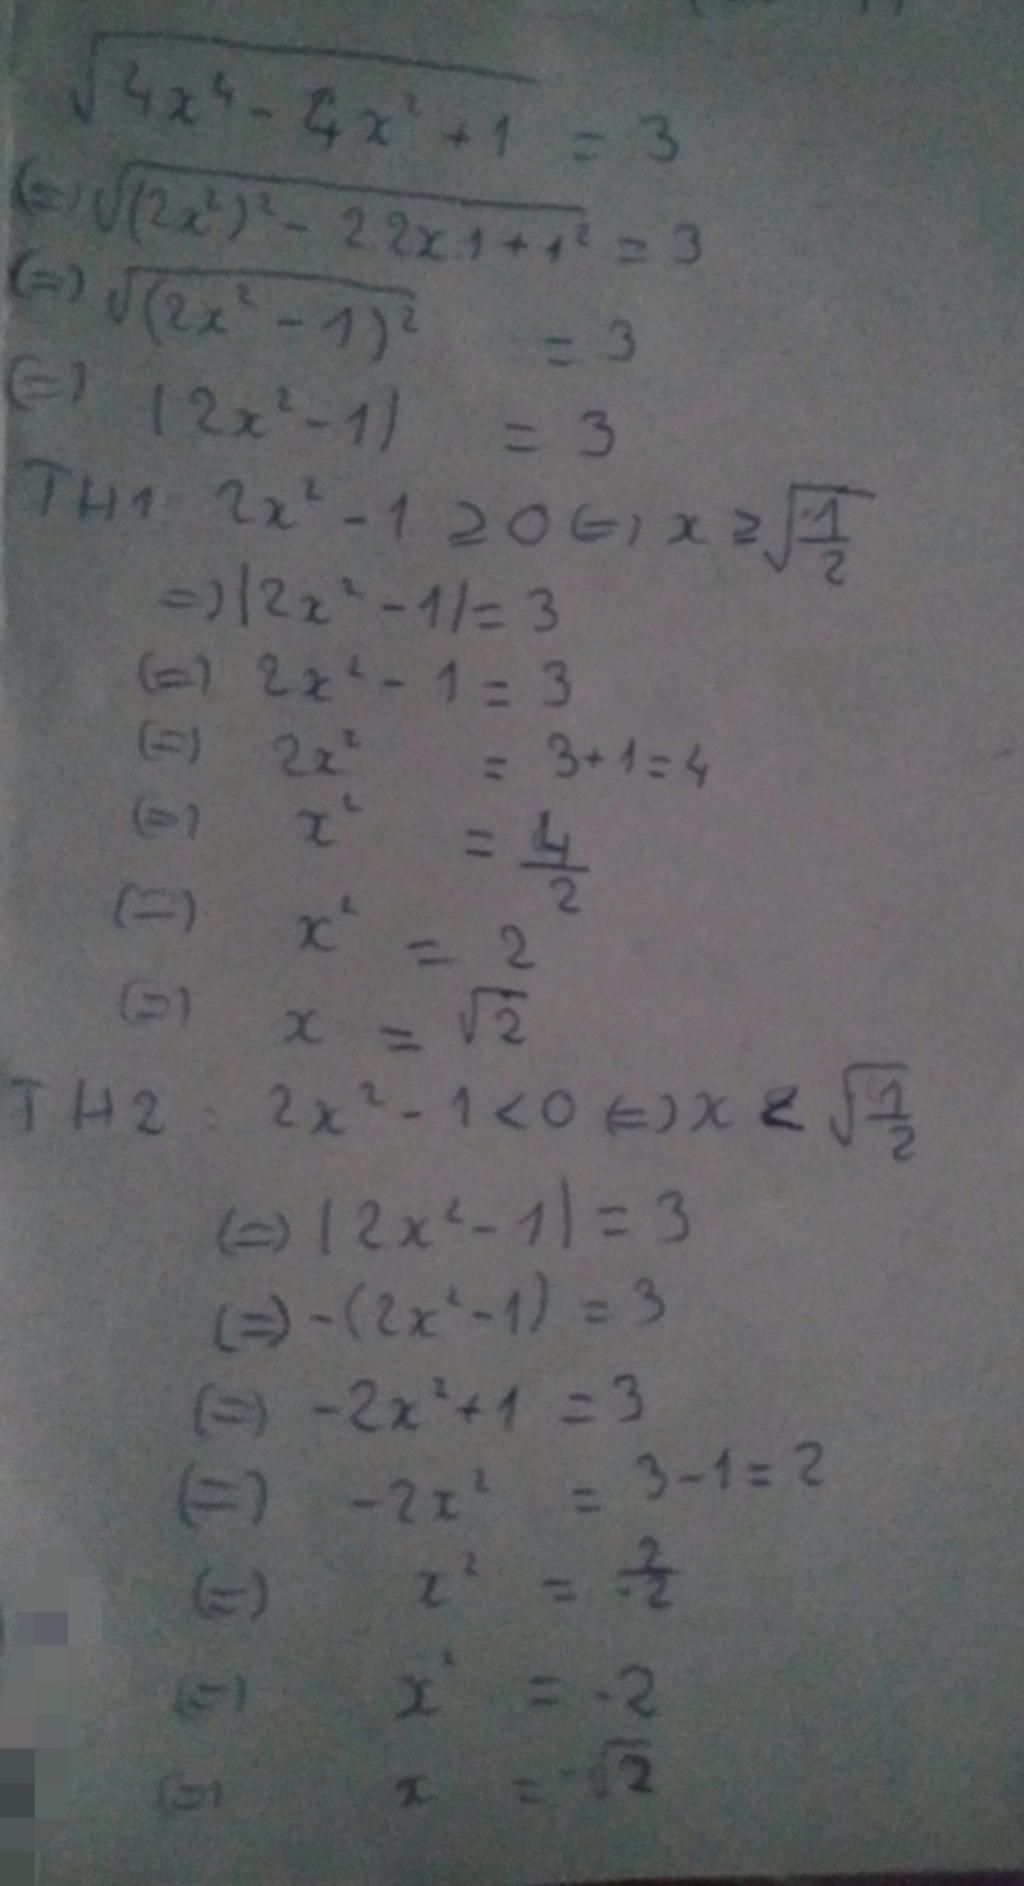 √(4x⁴ - 4x² + 1) = 3
(=) √((2x²)² - 2.2x.1 + 1²) = 3
(=) √((2x² - 1)²) = 3
(=) |2x² - 1| = 3
TH1 2x² - 1 ≥ 0 (=) x ≥ √(1/2)
=) |2x² - 1| = 3
(=) 2x² - 1 = 3
(=) 2x² = 3 + 1 = 4
(=) x² = 4/2
(=) x² = 2
(=) x = √2
TH2 : 2x² - 1 < 0 (=) x < √(1/2)
(=) |2x² - 1| = 3
(=) -(2x² - 1) = 3
(=) -2x² + 1 = 3
(=) -2x² = 3 - 1 = 2
(=) x² = 2/-2
(=) x² = -2
(=) x = -√2